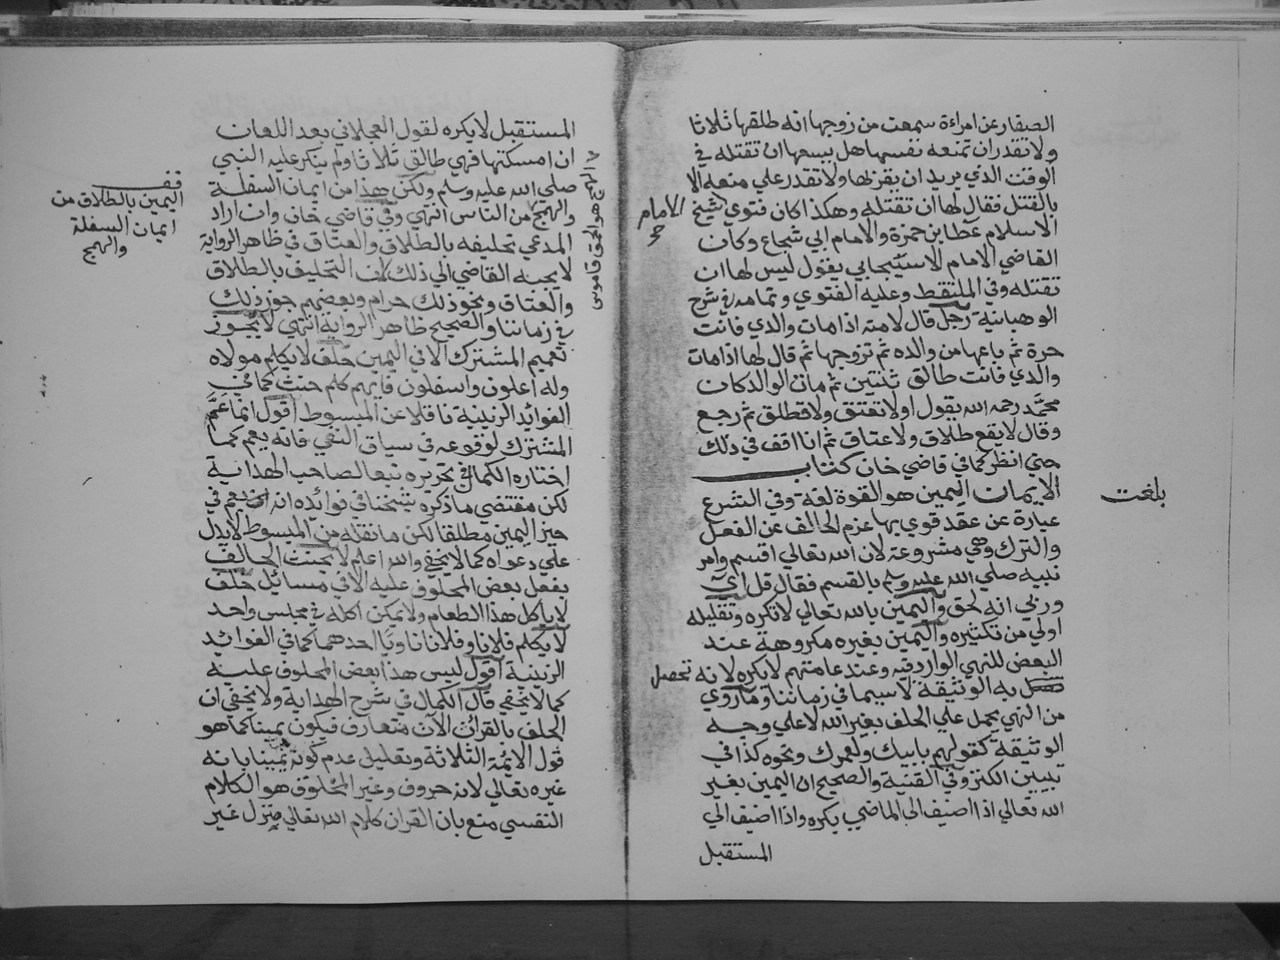 الصفار عن امراءة سمعت من زوجها انه طلقها ثلاثا
ولا تقدر ان تمنعه نفسها هل يسعها ان تقتله في
الوقت الذي يريد ان يقربها ولا تقدر علي منعه الا
بالقتل فقال لها ان تقتله وهكذا كان فتوي شيخ
الامام
الاسلام عطا بن حمزة والامام ابي شجاع وكان
القاضي الامام الاسبيجابي يقول ليس لها ان
تقتله وفي الملتقط وعليه الفتوي وتمامه في شرح
الوهبانية رجل قال لامته اذا مات والدي فانت
حرة ثم باعها من والده ثم تزوجها ثم قال لها اذا مات
والدي فانت طالق ثنتين ثم مات الوالد كان
محمد رحمه الله يقول اولا تعتق ولا تطلق ثم رجع
وقال لا يقع طلاق ولا عتاق ثم انا اقف في ذلك
حتي انظر كما في قاضي خان كتاب
الايمان اليمين هو القوة لغة وفي الشرع
بلغت
عبارة عن عقد قوي بها عزم الحالف عن الفعل
والترك وهي مشروعة لان الله تعالي اقسم وامر
نبيه صلي الله عليه وسلم بالقسم فقال قل اي
وربي انه لحق واليمين بالله تعالي لا تكره وتقليله
اولي من تكثيره واليمين بغيره مكروهة عند
البعض للنهي الوارد فيه وعند عامتهم لا يكره لانه تحصل
به الوثيقة لا سيما في زماننا وما روي
من النهي يحمل علي الحلف بغير الله لا علي وجه
الوثيقة كقولهم بابيك ولعمرك ونحوه كذا في
تبيين الكنز وفي القنية والصحيح ان اليمين بغير
الله تعالي اذا اضيف الي الماضي يكره واذا اضيف الي
المستقبل
المستقبل لا يكره لقول العجلاني بعد اللعان
ان امسكتها فهي طالق ثلاثا ولم ينكر عليه النبي
صلي الله عليه وسلم ولكن هذا من ايمان السفلة
والهمج من الناس انتهي وفي قاضي خان وان اراد
المدعي تحليفه بالطلاق والعتاق في ظاهر الرواية
لا يجيبه القاضي الي ذلك لان التحليف بالطلاق
والعتاق ونحو ذلك حرام وبعضهم جوز ذلك
في زماننا والصحيح ظاهر الرواية انتهي لا يجوز
تعميم المشترك الا في اليمين حلف لا يكلم مولاه
وله اعلون واسفلون فايهم كلم حنث كما في
الفوائد الزينية ناقلا عن المبسوط اقول انما عم
المشترك لوقوعه في سياق النفي فانه يعم كما
اختاره الكمال في تحريره تبعا لصاحب الهداية
لكن مقتضي ما ذكره شيخنا في فوائده انه يعم في
حيز اليمين مطلقا لكن ما نقله من المبسوط لا يدل
علي دعواه كما لا يخفي والله اعلم لا يحنث الحالف
بفعل بعض المحلوف عليه الا في مسائل حلف
لا ياكل هذا الطعام ولا يمكن اكله في مجلس واحد
لا يكلم فلانا وفلانا ناويا احدهما كما في الفوائد
الزينية اقول ليس هذا بعض المحلوف عليه
كما لا يخفي قال الكمال في شرح الهداية ولا يخفي ان
الحلف بالقران الآن متعارف فيكون يمينا كما هو
قول الايمة الثلاثة وتعليل عدم كونه يمينا بانه
غيره تعالي لانه حروف وغير المخلوق هو الكلام
النفسي منع بان القران كلام الله تعالي منزل غير
اليمين بالطلاق من
ايمان السفلة
والهمج
الهمج هو الحمق قاموس